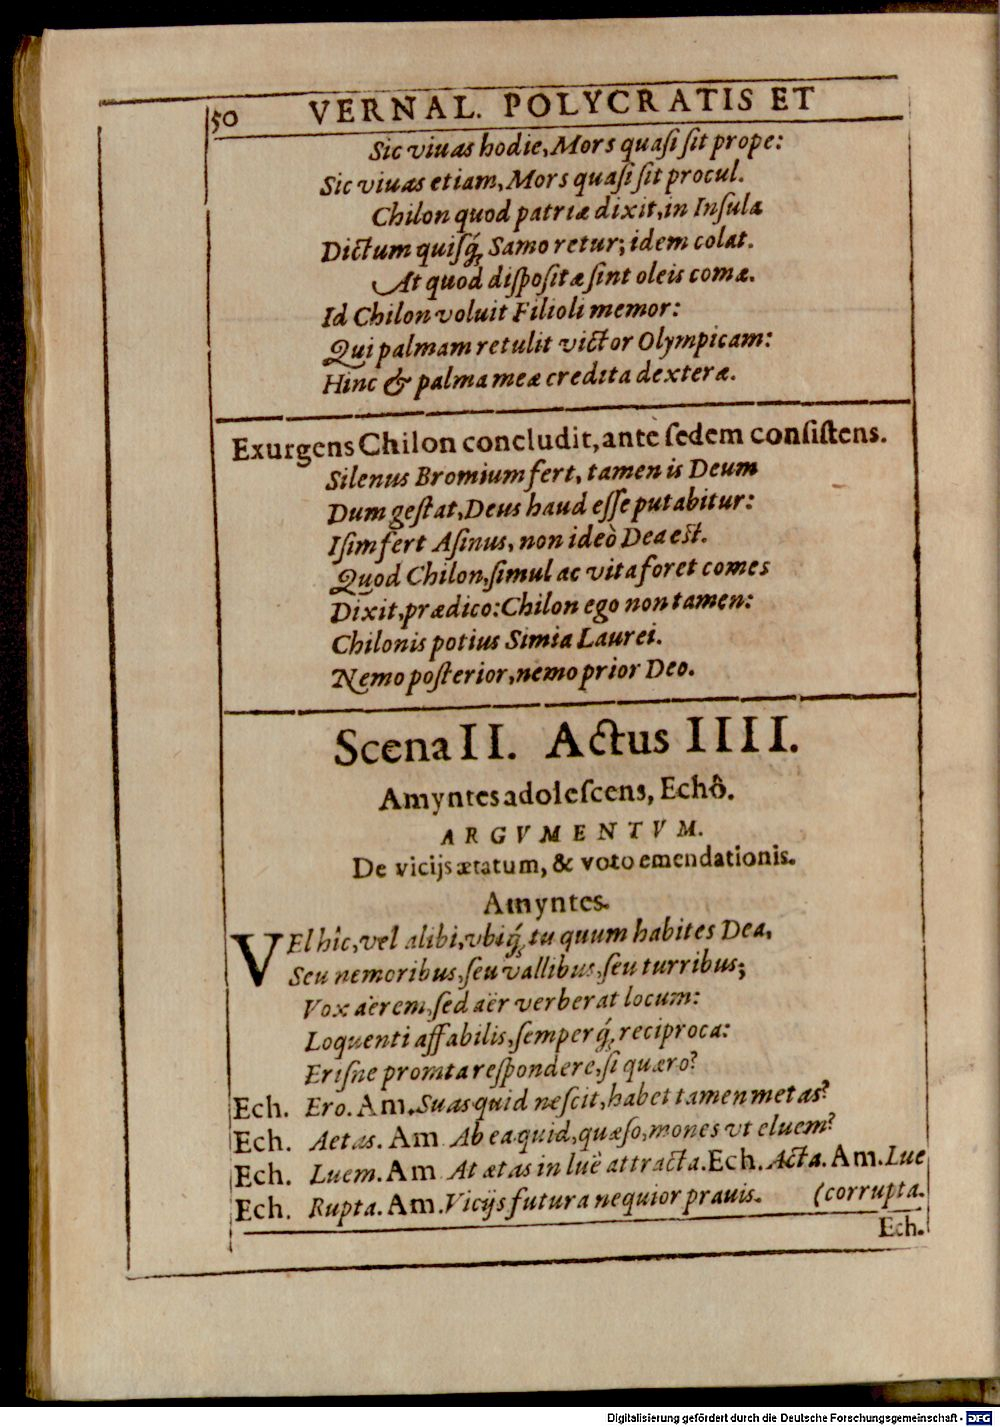 50 VERNAL. POLYCRATIS ET
Sic viuas hodie, Mors quaſi ſit prope:
Sic viuas etiam, Mors quaſi ſit procul.
Chilon quod patriæ dixit, in Inſula
Dictum quiſq́; Samo retur; idem colat.
At quod diſpoſitæ ſint oleis comæ.
Id Chilon voluit Filioli memor:
Qui palmam retulit victor Olympicam:
Hinc & palma meæ credita dexteræ.
Exurgens Chilon concludit, antè ſedem conſiſtens.
Silenus Bromium fert, tamen is Deum
Dum geſtat, Deus haud eſſe putabitur:
Iſim fert Aſinus, non ideò Dea eſt.
Quod Chilon, ſimul ac vita foret comes
Dixit, prædico: Chilon ego non tamen:
Chilonis potius Simia Laurei.
Nemo poſterior, nemo prior Deo.
Scena II. Actus IIII.
Amyntes adoleſcens, Echô.
ARGVMENTVM.
De vicijs ætatum, & voto emendationis.
Amyntes.
VEl hîc, vel alibi, vbiq́; tu quum habites Dea,
Seu nemoribus, ſeu vallibus, ſeu turribus;
Vox aërem, ſed aër verberat locum:
Loquenti affabilis, ſemperq́; reciproca:
Eriſne promta reſpondere, ſi quæro?
Ech. Ero. Am. Suas quid neſcit, habet tamen metas?
Ech. Aetas. Am. Ab ea quid, quæſo, mones vt eluem?
Ech. Luem. Am. At ætas in luë attracta. Ech. Acta. Am. Lue
Ech. Rupta. Am. Vicijs futura nequior prauis. (corrupta.
Ech.
Digitalisierung gefördert durch die Deutsche Forschungsgemeinschaft - DFG